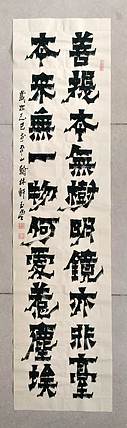 菩提本無樹明鏡亦非臺
本來無一物何處惹塵埃
歲次 翰林軒